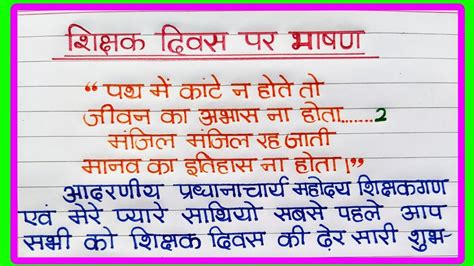 शिक्षक दिवस पर भाषण
“ पथ में कांटे न होते तो
जीवन का अभास ना होता.......2
मंजिल मंजिल रह जाती
मानव का इतिहास ना होता।”
आदरणीय प्रधानाचार्य महोदय शिक्षकगण
एवं मेरे प्यारे साथियो सबसे पहले आप
सभी को शिक्षक दिवस की ढ़ेर सारी शुभ-